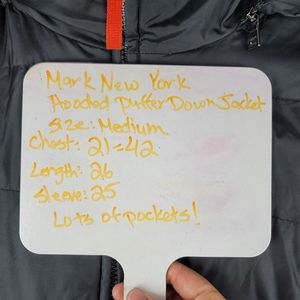 Mark New York
Hooded Puffer Down Jacket
Size: Medium
Chest: 21=42
Length: 26
Sleeve: 25
Lots of pockets!